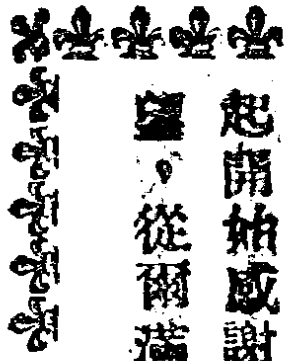 起開始感謝
，從爾滿